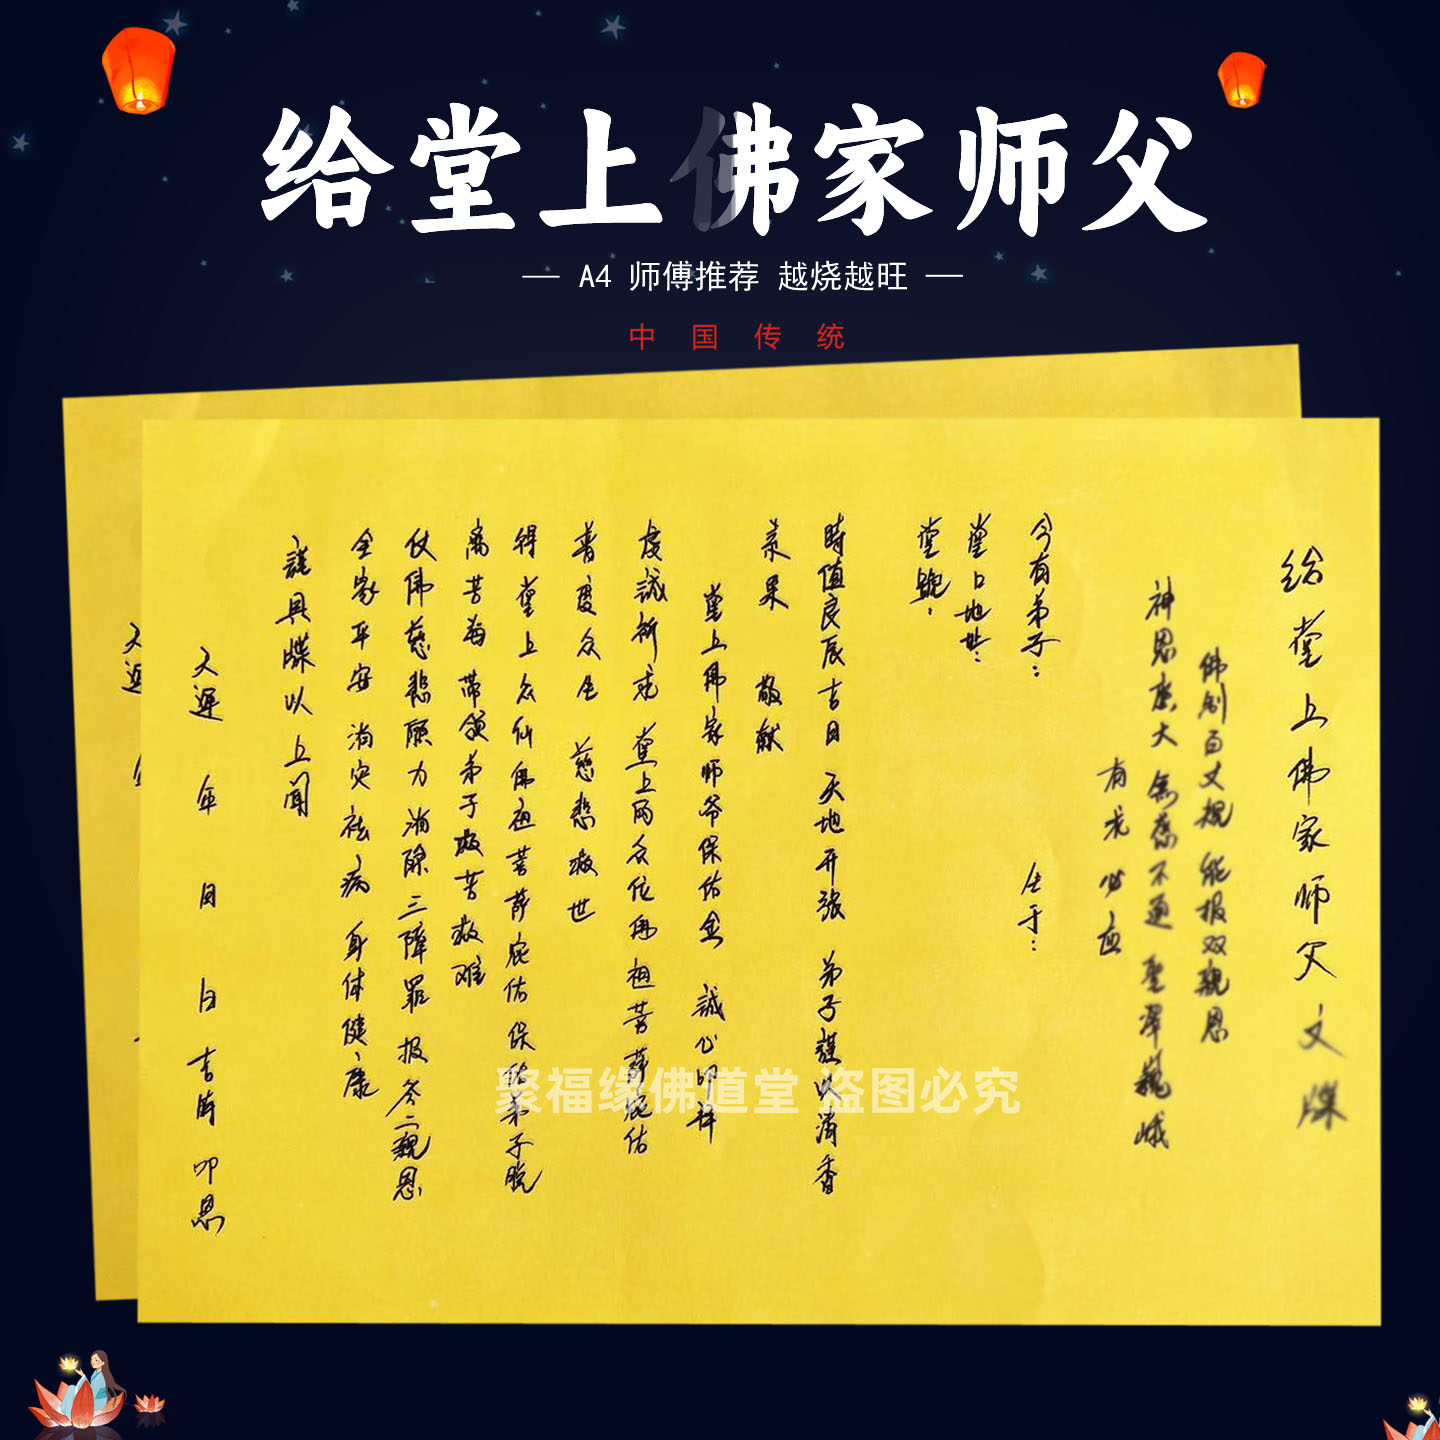 给堂上佛家师父
A4 师傅推荐 越烧越旺
中国传统
给堂上佛家师父文牒
佛制百丈规 能报双亲恩
神恩广大 無 不通 聖澤巍峨
有求必应
今有弟子： 住于：
堂口地址：
堂號：
時值良辰吉日 天地开张 弟子謹以清香
菜果 敬献
堂上佛家师爷保佑金 誠心叩拜
虔誠祈求 堂上 众位佛祖菩萨庇佑
普度众生 慈悲救世
得堂上众仙佛祖菩萨庇佑 保佑弟子脱
离苦海 带领弟子救苦救难
仗佛慈悲愿力 消除三障罪 报答二親恩
全家平安 消灾祛病 身体健康
謹具牒以上聞
天運 年 月 日 吉時 叩恩
天運
聚福缘佛道堂 盗图必究